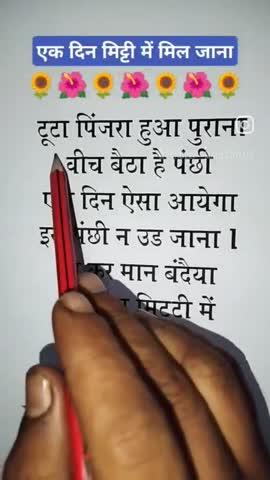 एक दिन मिट्टी में मिल जाना
टूटा पिंजरा हुआ पुराना
बीच बैठा है पंछी
दिन ऐसा आयेगा
पंछी न उड जाना ।
कर मान बंदैया
मिटटी में